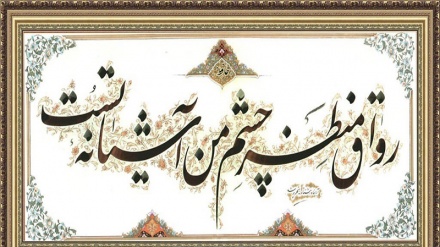 رواق منظر چشم من آشیانه تست